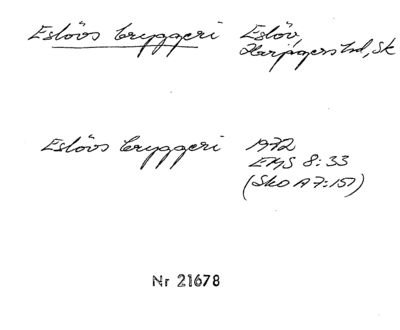 Eslövs bryggeri Eslöv,
Harjagers hd, Sk
Eslövs bryggeri 1972
EMS 8:33
(Sko A 7:151)
Nr 21678